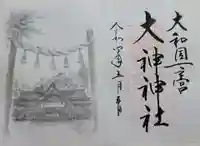 大和国一宮
大神神社
令和四年五月五日